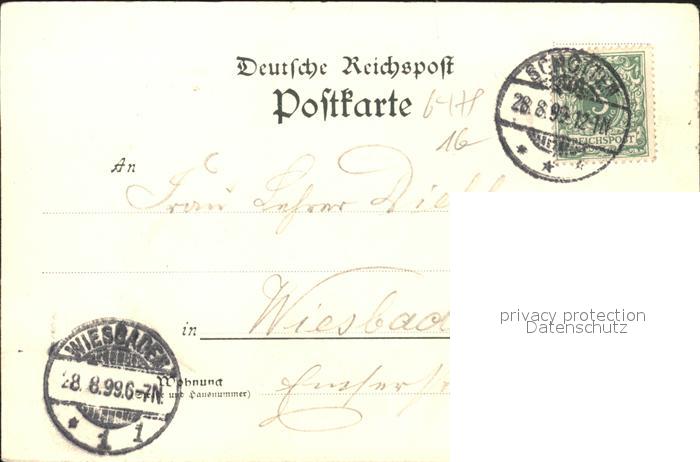 Deutsche Reichspost
Postkarte
16
SCHOTTEN
28.8.99.12-1N.
REICHSPOST
An
Frau Lehrer
in Wiesbad
Wohnung
(Straße und Hausnummer)
WIESBADEN
28.8.99.6-7N.
* 1 1
privacy protection
Datenschutz